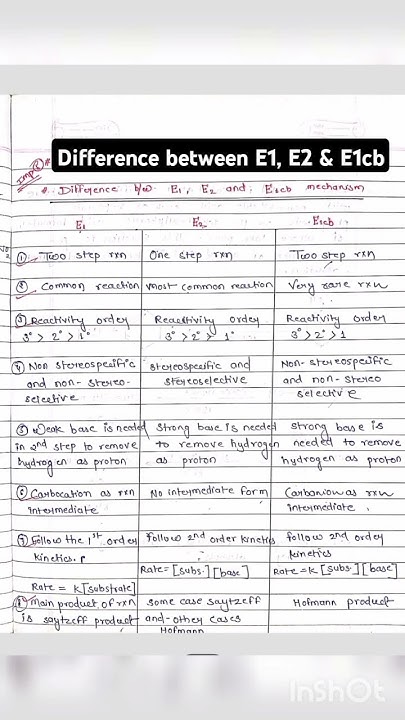 Difference between E1, E2 & E1cb
Imp
# Difference b/w E1, E2 and E1cb mechanism
E1 E2 E1cb
① Two step rxn One step rxn Two step rxn
② Common reaction most common reaction Very rare rxn
③ Reactivity order Reactivity order Reactivity order
3° > 2° > 1° 3° > 2° > 1° 3° > 2° > 1
④ Non stereospecific stereospecific and Non-stereospecific
and non-stereo- stereoselective and non-stereo
selective selective
⑤ Weak base is needed strong base is needed strong base is
in 2nd step to remove to remove hydrogen needed to remove
hydrogen as proton as proton hydrogen as proton
⑥ Carbocation as rxn No intermediate form Carbanion as rxn
intermediate intermediate.
⑦ Follow the 1st order follow 2nd order kinetics follow 2nd order
kinetics. kinetics
Rate = [subs.] [base] Rate = k [subs.] [base]
Rate = k [substrate]
⑧ main product of rxn some case saytzeff Hofmann product
is saytzeff product and other cases
Hofmann
InShOt